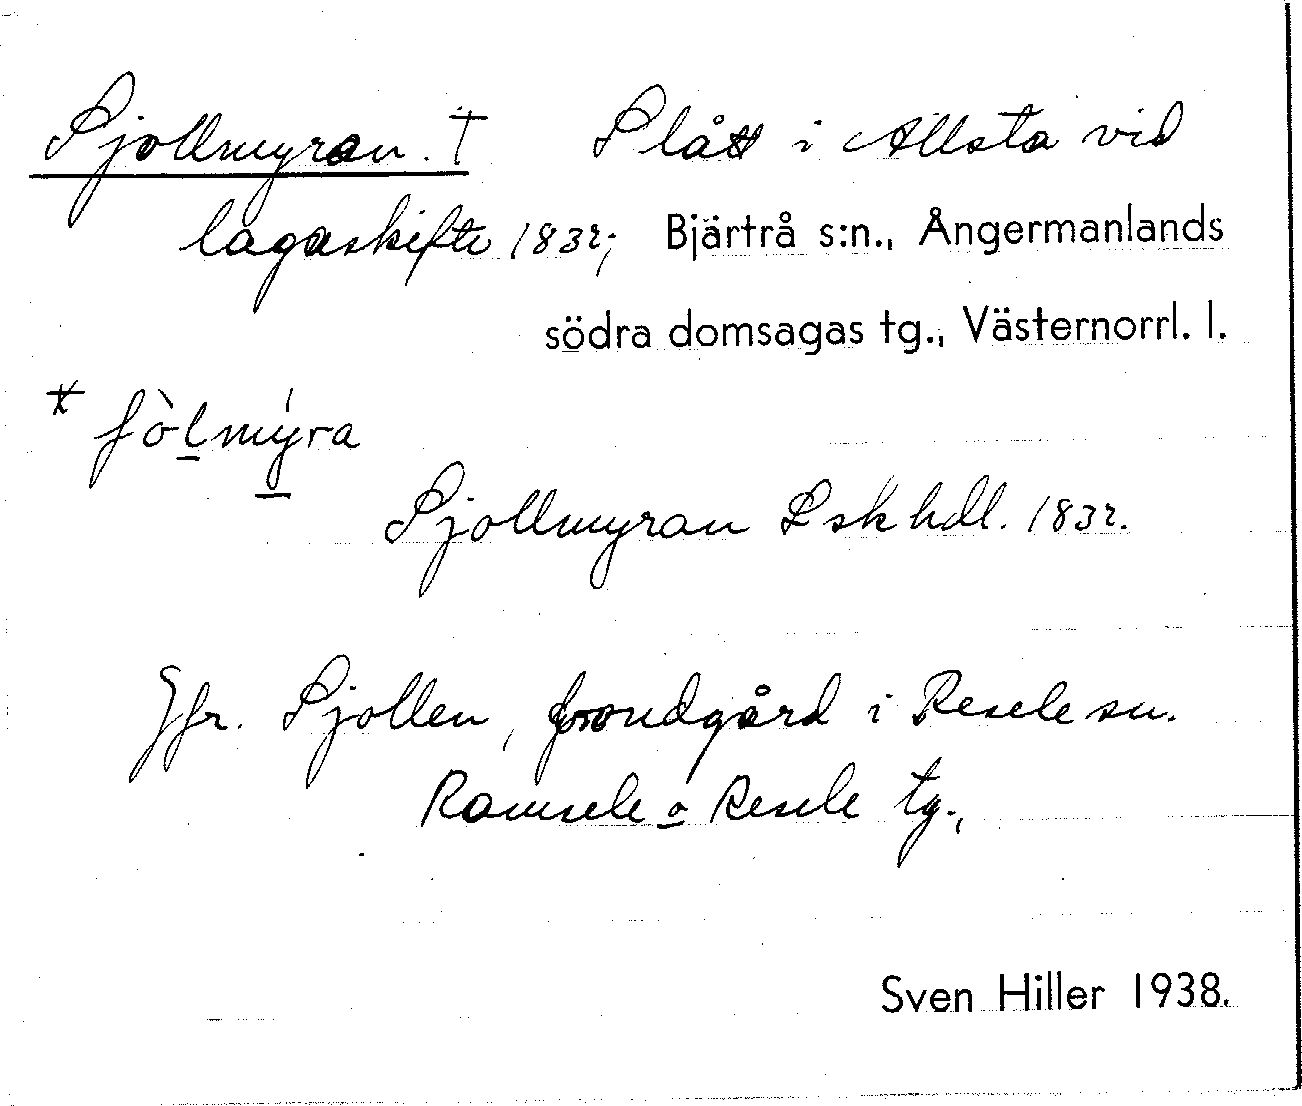 Sjollmyran. † Slått i Allsta vid
lagaskifte 1832; Bjärtrå s:n., Ångermanlands
södra domsagas tg., Västernorrl. l.
* ʃòl̲mý̲ra
Sjollmyran Lskhdl. 1832.
Jfr. Sjollen, frondgård i Resele sn.
Ramsele o Resele tg.,
Sven Hiller 1938.